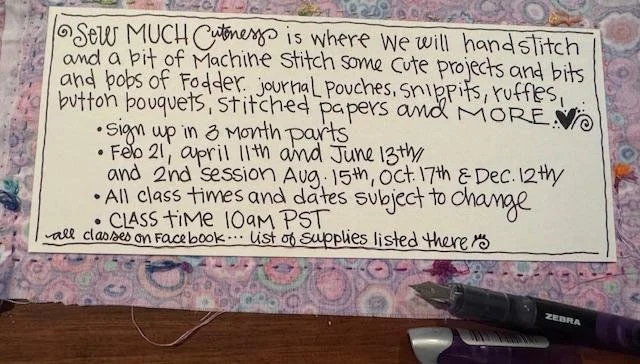 Sew MUCH Cuteness is where we will handstitch
and a bit of Machine stitch some cute projects and bits
and bobs of Fodder. journal pouches, snippits, ruffles,
button bouquets, stitched papers and MORE
• sign up in 3 month parts
• Feb 21, april 11th and June 13th/
and 2nd session Aug. 15th, Oct. 17th & Dec. 12th/
• All class times and dates subject to change
• CLASS time 10am PST
all classes on Facebook... list of supplies listed there
ZEBRA